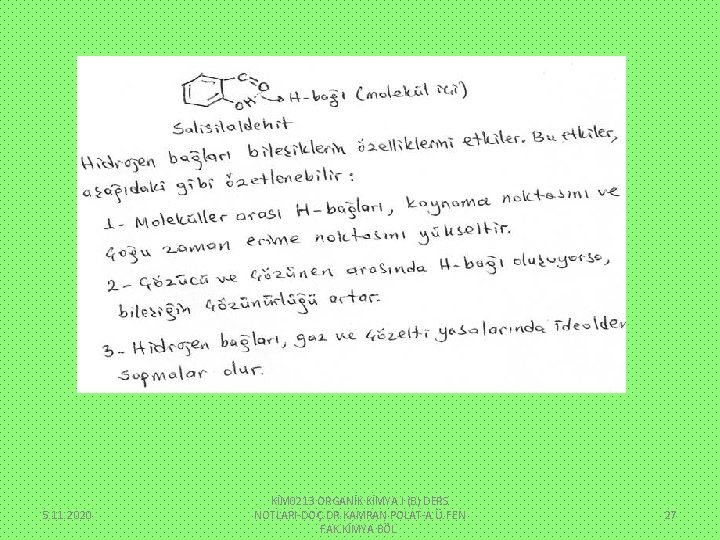 C=O
OH → H-bağı (molekül içi)
Salisilaldehit
Hidrojen bağları bileşiklerin özelliklerini etkiler. Bu etkiler,
aşağıdaki gibi özetlenebilir:
1- Moleküller arası H-bağları, kaynama noktasını ve
çoğu zaman erime noktasını yükseltir.
2- Çözücü ve çözünen arasında H-bağı oluşuyorsa,
bileşiğin çözünürlüğü artar.
3- Hidrojen bağları, gaz ve çözelti yasalarında idealden
sapmalar olur.
5.11.2020
KİM0213 ORGANİK KİMYA I (B) DERS
NOTLARI-DOÇ.DR.KAMRAN POLAT-A.Ü.FEN
FAK.KİMYA BÖL
27